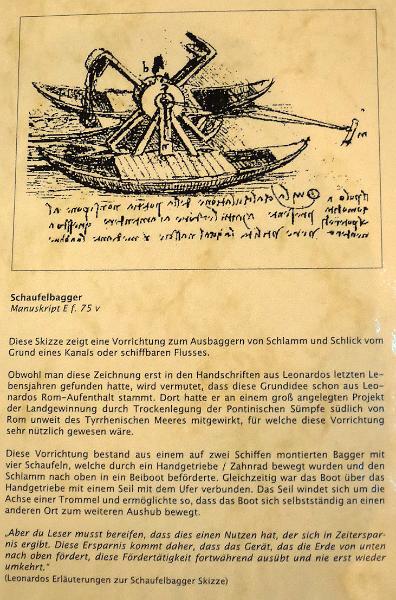 b
m
Schaufelbagger
Manuskript E f. 75 v
Diese Skizze zeigt eine Vorrichtung zum Ausbaggern von Schlamm und Schlick vom
Grund eines Kanals oder schiffbaren Flusses.
Obwohl man diese Zeichnung erst in den Handschriften aus Leonardos letzten Le-
bensjahren gefunden hatte, wird vermutet, dass diese Grundidee schon aus Leo-
nardos Rom-Aufenthalt stammt. Dort hatte er an einem groß angelegten Projekt
der Landgewinnung durch Trockenlegung der Pontinischen Sümpfe südlich von
Rom unweit des Tyrrhenischen Meeres mitgewirkt, für welche diese Vorrichtung
sehr nützlich gewesen wäre.
Diese Vorrichtung bestand aus einem auf zwei Schiffen montierten Bagger mit
vier Schaufeln, welche durch ein Handgetriebe / Zahnrad bewegt wurden und den
Schlamm nach oben in ein Beiboot beförderte. Gleichzeitig war das Boot über das
Handgetriebe mit einem Seil mit dem Ufer verbunden. Das Seil windet sich um die
Achse einer Trommel und ermöglichte so, dass das Boot sich selbstständig an einen
anderen Ort zum weiteren Aushub bewegt.
„Aber du Leser musst bereifen, dass dies einen Nutzen hat, der sich in Zeiterspar-
nis ergibt. Diese Ersparnis kommt daher, dass das Gerät, das die Erde von unten
nach oben fördert, diese Fördertätigkeit fortwährend ausübt und nie erst wieder
umkehrt."
(Leonardos Erläuterungen zur Schaufelbagger Skizze)